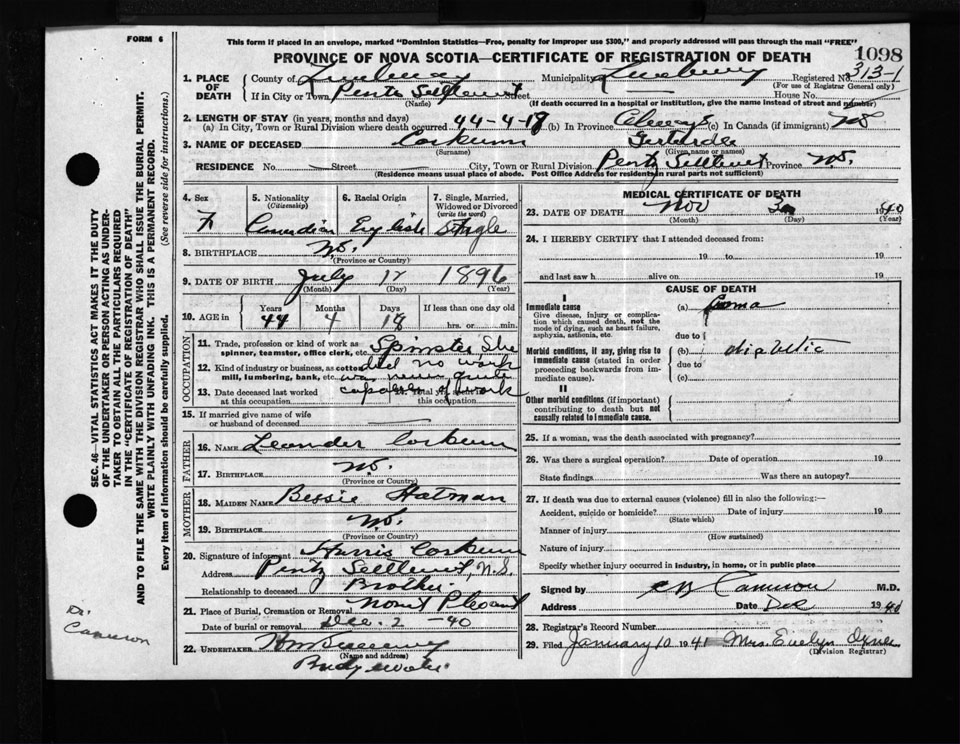 FORM 6
This form if placed in an envelope, marked "Dominion Statistics—Free, penalty for improper use $300," and properly addressed will pass through the mail "FREE"
PROVINCE OF NOVA SCOTIA—CERTIFICATE OF REGISTRATION OF DEATH
1098
1. PLACE OF DEATH County of Lunenburg Municipality Lunenburg Registered No. 313-1
(For use of Registrar General only)
If in City or Town Pentz Settlement Street House No.
(Name) (If death occurred in a hospital or institution, give the name instead of street and number)
2. LENGTH OF STAY (in years, months and days)
(a) In City, Town or Rural Division where death occurred 44-4-18 (b) In Province Always (c) In Canada (if immigrant)
3. NAME OF DECEASED Corkum Gertrude
(Surname) (Given name or names)
RESIDENCE No. Street City, Town or Rural Division Pentz Settlement Province N.S.
(Residence means usual place of abode. Post Office Address for residents in rural parts not sufficient)
4. Sex F
5. Nationality (Citizenship) Canadian
6. Racial Origin English
7. Single, Married, Widowed or Divorced (write the word) Single
8. BIRTHPLACE N.S.
(Province or Country)
9. DATE OF BIRTH July 12 1896
(Month) (Day) (Year)
10. AGE in Years 44 Months 4 Days 18 If less than one day old
hrs. or min.
OCCUPATION
11. Trade, profession or kind of work as spinner, teamster, office clerk, etc. Spinster She
12. Kind of industry or business, as cotton mill, lumbering, bank, etc. did no work
was never quite
13. Date deceased last worked at this occupation 14. Total yrs. spent in this occupation capable of work
15. If married give name of wife or husband of deceased
FATHER
16. NAME Leander Corkum
17. BIRTHPLACE N.S.
(Province or Country)
MOTHER
18. MAIDEN NAME Bessie Hatman
19. BIRTHPLACE N.S.
(Province or Country)
20. Signature of informant Harris Corkum
Address Pentz Settlement, N.S.
Relationship to deceased Brother
21. Place of Burial, Cremation or Removal Mont Plesant
Date of burial or removal Dec. 2 -40
22. UNDERTAKER
(Name and address)
Bridgewater
MEDICAL CERTIFICATE OF DEATH
23. DATE OF DEATH Nov 30 1940
(Month) (Day) (Year)
24. I HEREBY CERTIFY that I attended deceased from:
19 to 19
and last saw h alive on 19
CAUSE OF DEATH
I
Immediate cause (a) Coma
Give disease, injury or complication which caused death, not the mode of dying, such as heart failure, asphyxia, asthenia, etc.
due to
Morbid conditions, if any, giving rise to immediate cause (stated in order proceeding backwards from immediate cause).
(b) diabetic
due to
(c)
II
Other morbid conditions (if important) contributing to death but not causally related to immediate cause.
25. If a woman, was the death associated with pregnancy?
26. Was there a surgical operation? Date of operation 19
State findings Was there an autopsy?
27. If death was due to external causes (violence) fill in also the following:—
Accident, suicide or homicide? Date of injury 19
(State which)
Manner of injury
(How sustained)
Nature of injury
Specify whether injury occurred in industry, in home, or in public place
Signed by Cameron M.D.
Address Date Dec 1940
28. Registrar's Record Number
29. Filed January 10 1941 Mrs. Evelyn
(Division Registrar)
SEC. 46—VITAL STATISTICS ACT MAKES IT THE DUTY
OF THE UNDERTAKER OR PERSON ACTING AS UNDER-
TAKER TO OBTAIN ALL THE PARTICULARS REQUIRED
IN THE "CERTIFICATE OF REGISTRATION OF DEATH"
AND TO FILE THE SAME WITH THE DIVISION REGISTRAR WHO SHALL ISSUE THE BURIAL PERMIT.
WRITE PLAINLY WITH UNFADING INK. THIS IS A PERMANENT RECORD.
Every item of information should be carefully supplied. (See reverse side for instructions.)
Dr.
Cameron